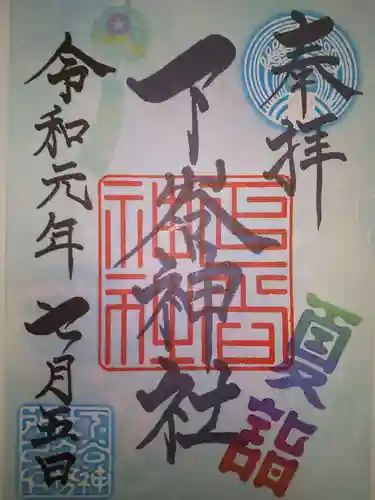 奉拝
下谷神社
令和元年七月五日
夏詣
下谷神社